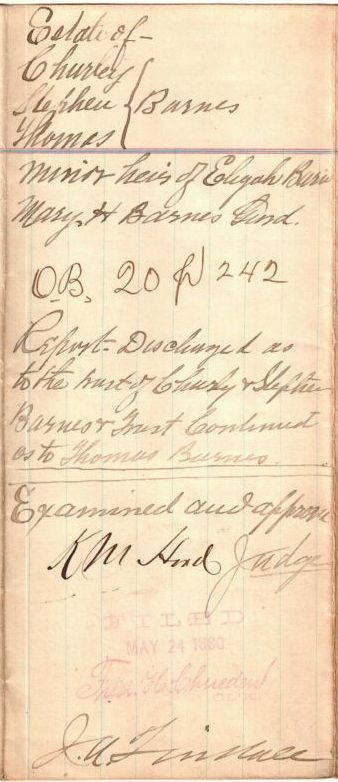 Estate of –
Churley
Stephen { Barnes
Thomas
Minor heirs of Elijah Barn
Mary H Barnes Gurd.
O.B. 20 p 242
Report - Discharged as
to the trust of Churly & Stephen
Barnes & Trust Continued
as to Thomas Barnes.
Examined and approve
K M Hord Judge
FILED
MAY 24 1880
CLERK
J. A.